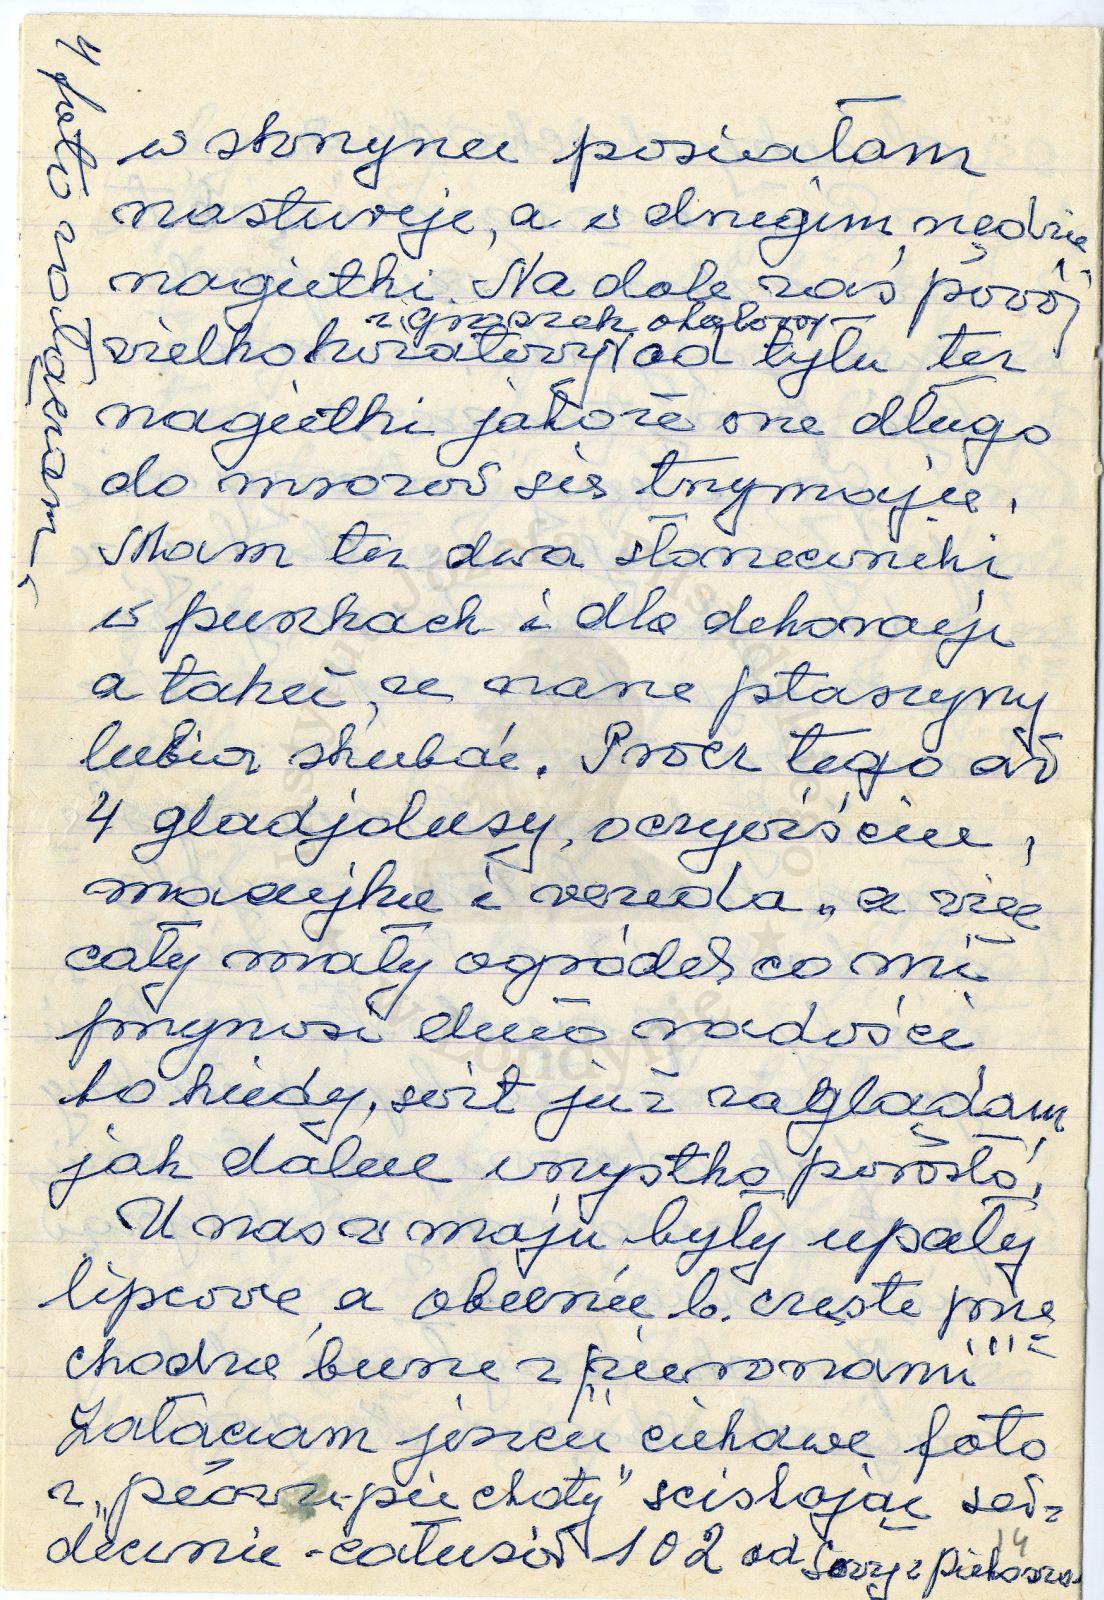 w skrzynce posiałam
nasturcje, a w drugim rzędzie
nagietki. Na dole zaś powój
wielkokwiatowy i groszek od tyłu też
nagietki jako że one długo
do mrozów się trzymają.
Mam też dwa słoneczniki
w puszkach i dla dekoracji
a także, że nasze ptaszyny
lubią skubać. Prócz tego aż
4 gladjolusy, oczywiście,
maciejka i rezeda, a więc
cały mały ogródek co mi
przynosi dużo radości
bo kiedy świt już zaglądam
jak dalece wszystko porosło.
U nas w maju były upały
lipcowe, a obecnie b. częste prze
chodzą burze z piorunami!!!
Załączam jeszcze ciekawe foto
z "pióro-piechoty" ściskając ser-
decznie - całusów 102 od Sowy z
4 foto załączam.
14